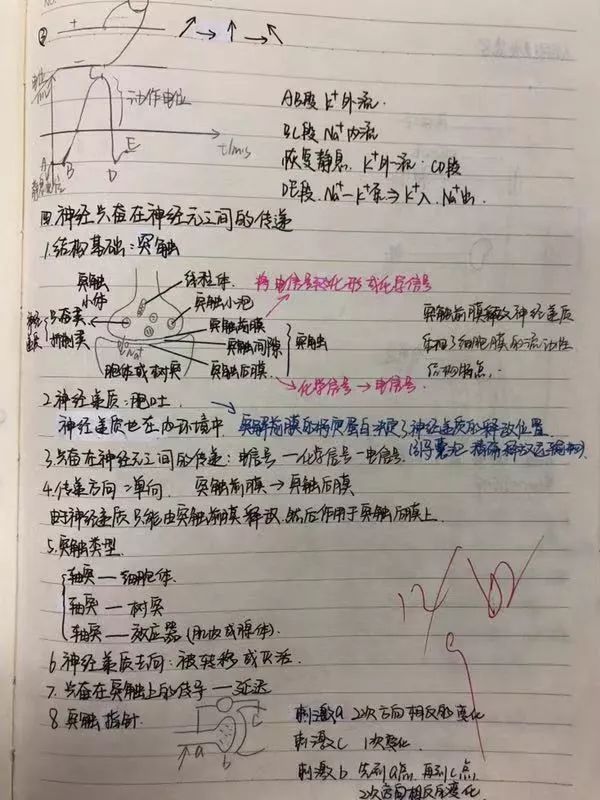 ② + ↗ → ↑ ↖
动作电位
t/ms
A B D E
AB段 K⁺外流.
BC段 Na⁺内流
恢复静息. K⁺外流. CD段
DE段. Na⁺-K⁺泵⇒K⁺入. Na⁺出.
四.神经兴奋在神经元之间的传递
1.结构基础:突触
突触小体
线粒体
突触小泡
将电信号转化形成化学信号
兴奋类
抑制类
突触前膜
突触间隙
突触后膜
突触
Na⁺
胞体或树突
化学信号→电信号.
突触前膜释放神经递质
体现了细胞膜的流动性
结构特点.
2.神经递质:胞吐
神经递质也在内环境中. 突触前膜的特定蛋白决定了神经递质的释放位置.
3.兴奋在神经元之间的传递:电信号—化学信号—电信号.
4.传递方向:单向. 突触前膜→突触后膜
由于神经递质只能由突触前膜释放.然后作用于突触后膜上.
5.突触类型.
轴突—细胞体.
轴突—树突
轴突—效应器(肌肉或腺体).
6.神经递质去向:被转移或灭活.
7.兴奋在突触上的传导—延迟
8.突触指针.
a b c
刺激a 2次方向相反的变化
刺激c 1次变化.
刺激b 先到a点.再到c点
2次方向相反变化
12/02
9